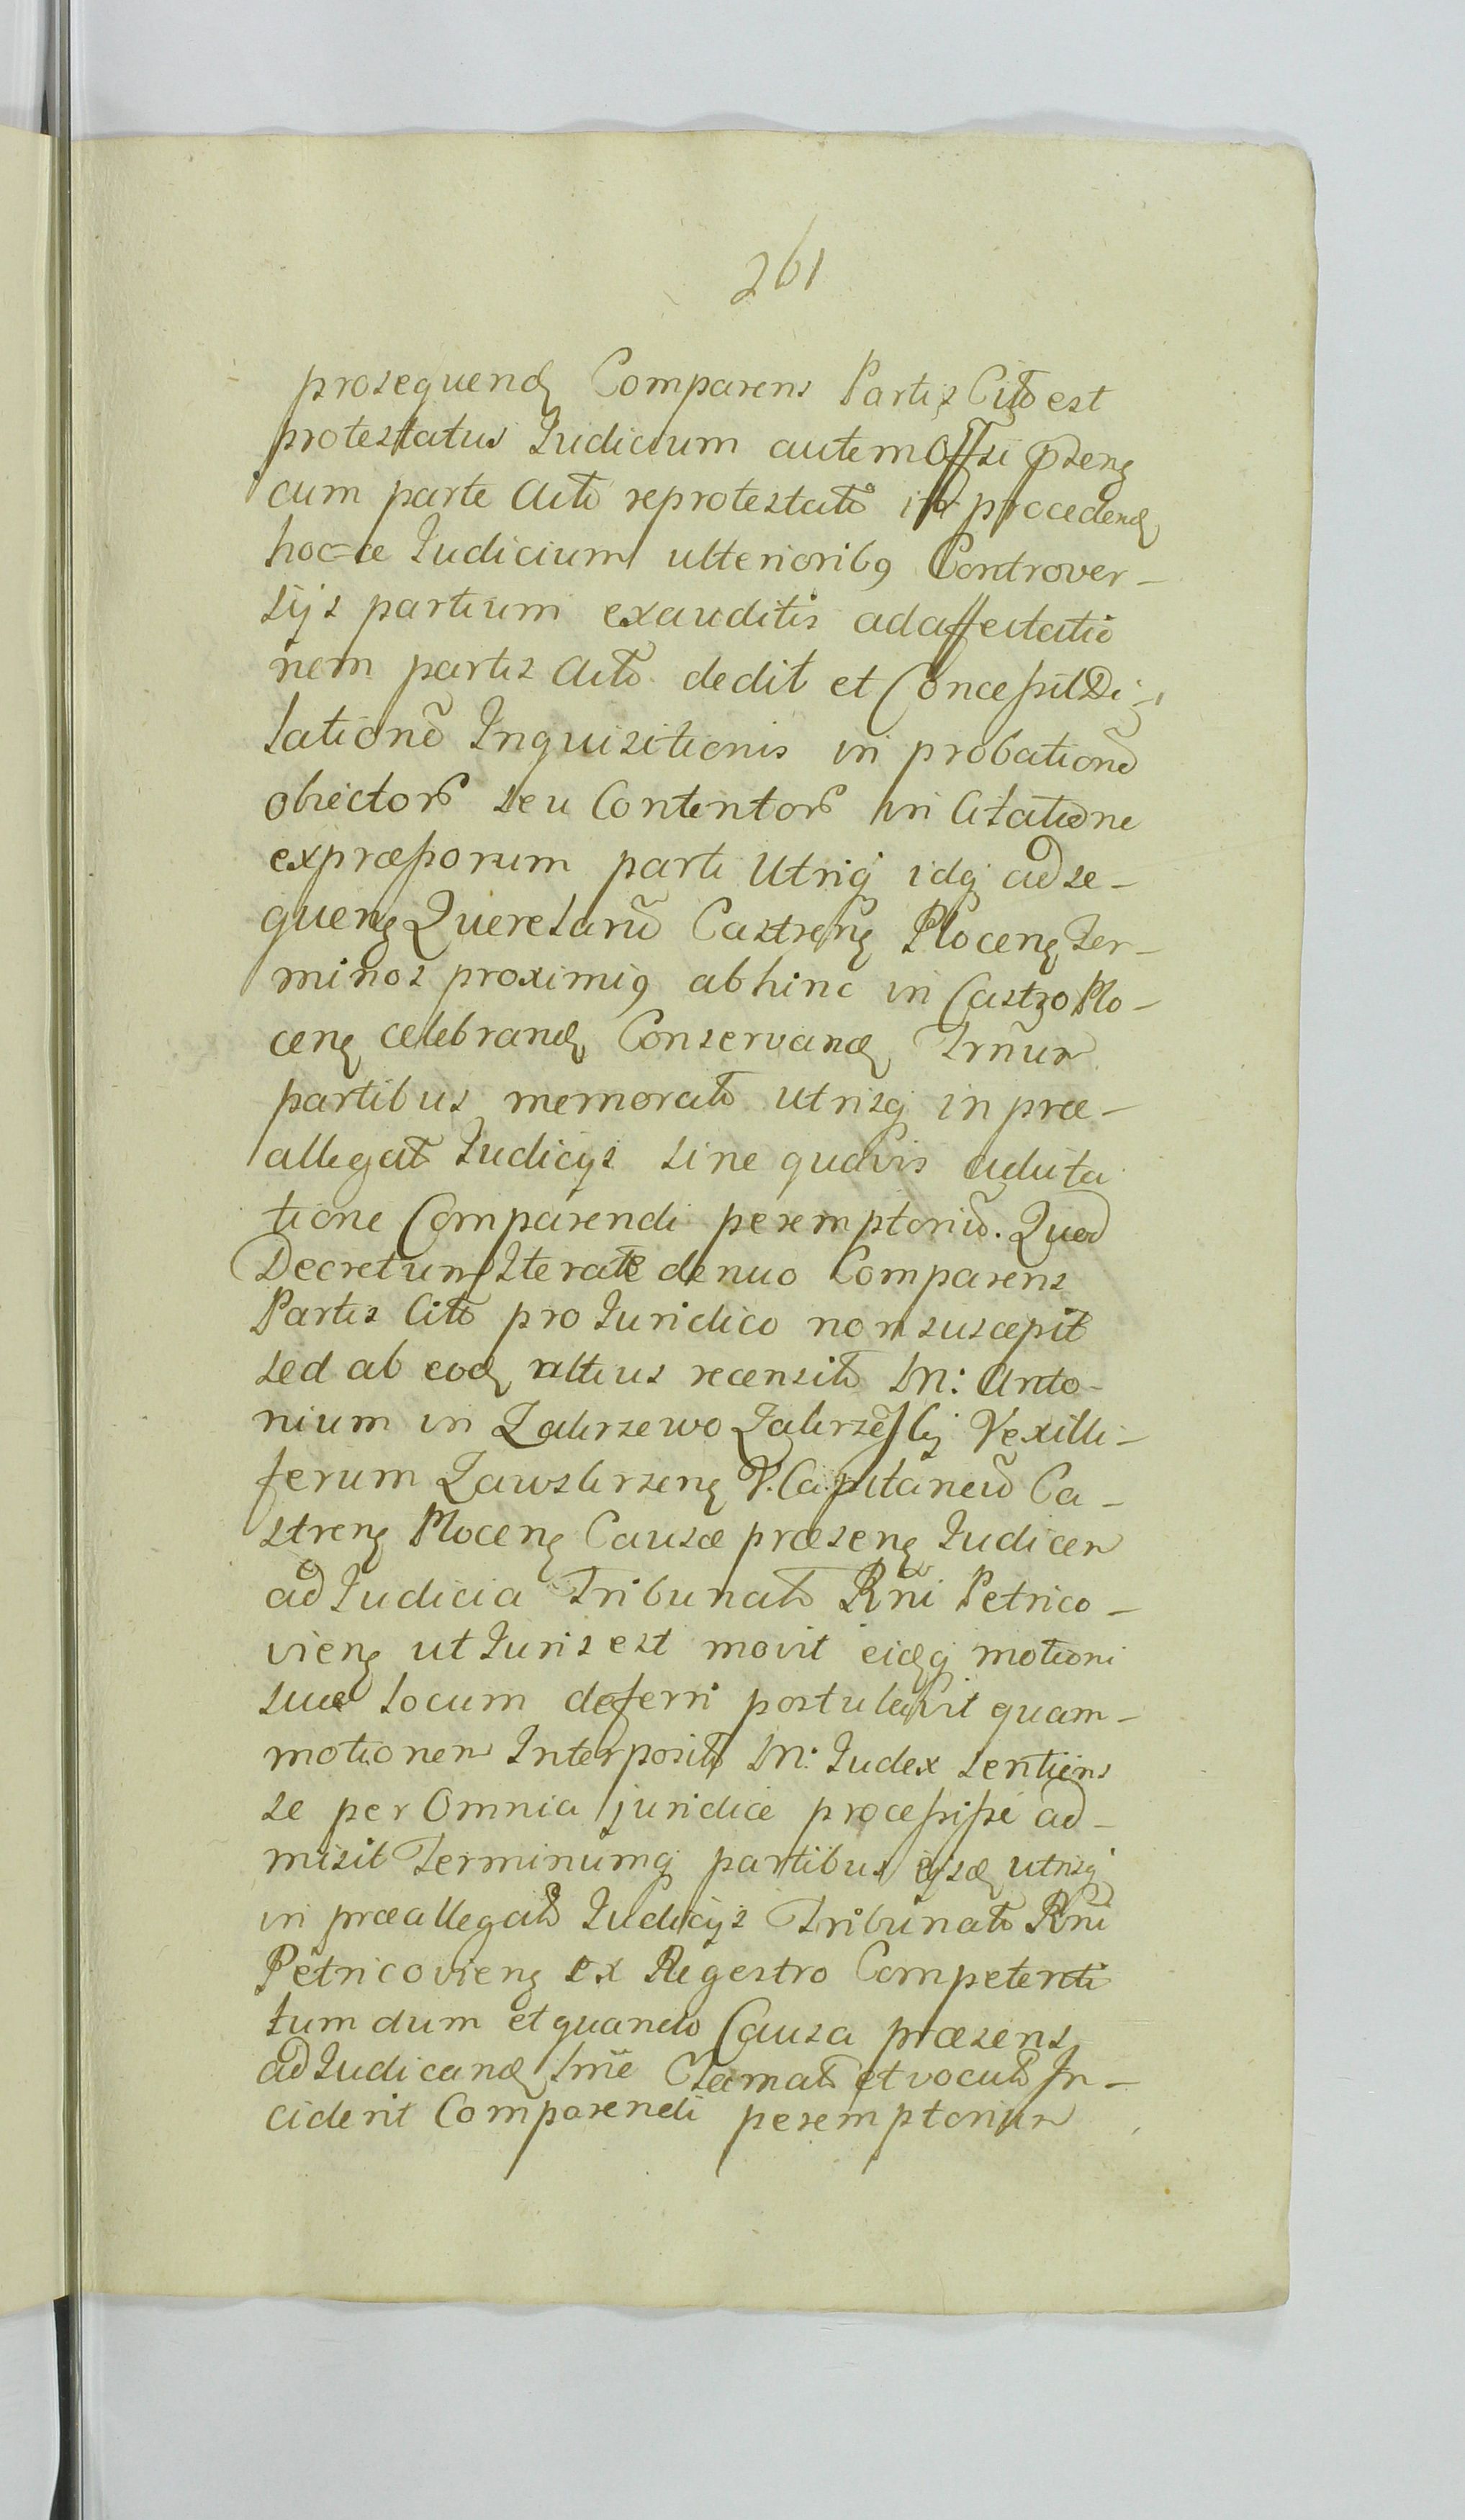 261
prosequend Comparens Partis Cito est
protestatus Judicium autem Offsi pseng
cum parte Acto reprotestato in procedend
hoc=ce Judicium ulteriorib9 Controver-
sijs partium exauditis ad affectatio
nem partis Acto dedit et Concessit Di-
lationē Inquisitionis in probationē
obiectorō seu Contentorō in Citatione
expressorum parti Utriq idq ad se-
queng Querelarū Castreng Ploceng Ter-
minos proximi9 abhinc in Castro Plo-
ceng celebrand Conservand Trnūm
partibus memorato utrisq in præ-
allegato Judicijs sine quavis adcita
tione Comparendi peremptoriū. Quod
Decretum Iterate denuo Comparens
Partis Cito pro Juridico non suscepit
sed ab eod altius recensito M: Anto-
nium in Zakrzewo Zakrzeski Vexilli-
ferum Zawskrzeng V. Capitaneū Ca-
streng Ploceng Causæ præseng Judicem
ad Judicia Tribunato Rñi Petrico-
vieng ut Juris est movit eidq motioni
suæ locum deferri postulavit quam-
motionem Interposito M: Judex sentiens
se per Omnia juridice processisse ad-
misit Terminumq partibus ijsd utrisq
in præallegato Judicijs Tribunato Rñi
Petricovieng ex Regestro Competenti
tum dum et quando Causa præsens
ad Judicand ... Clamato et vocato In-
ciderit Comparendi peremptorium